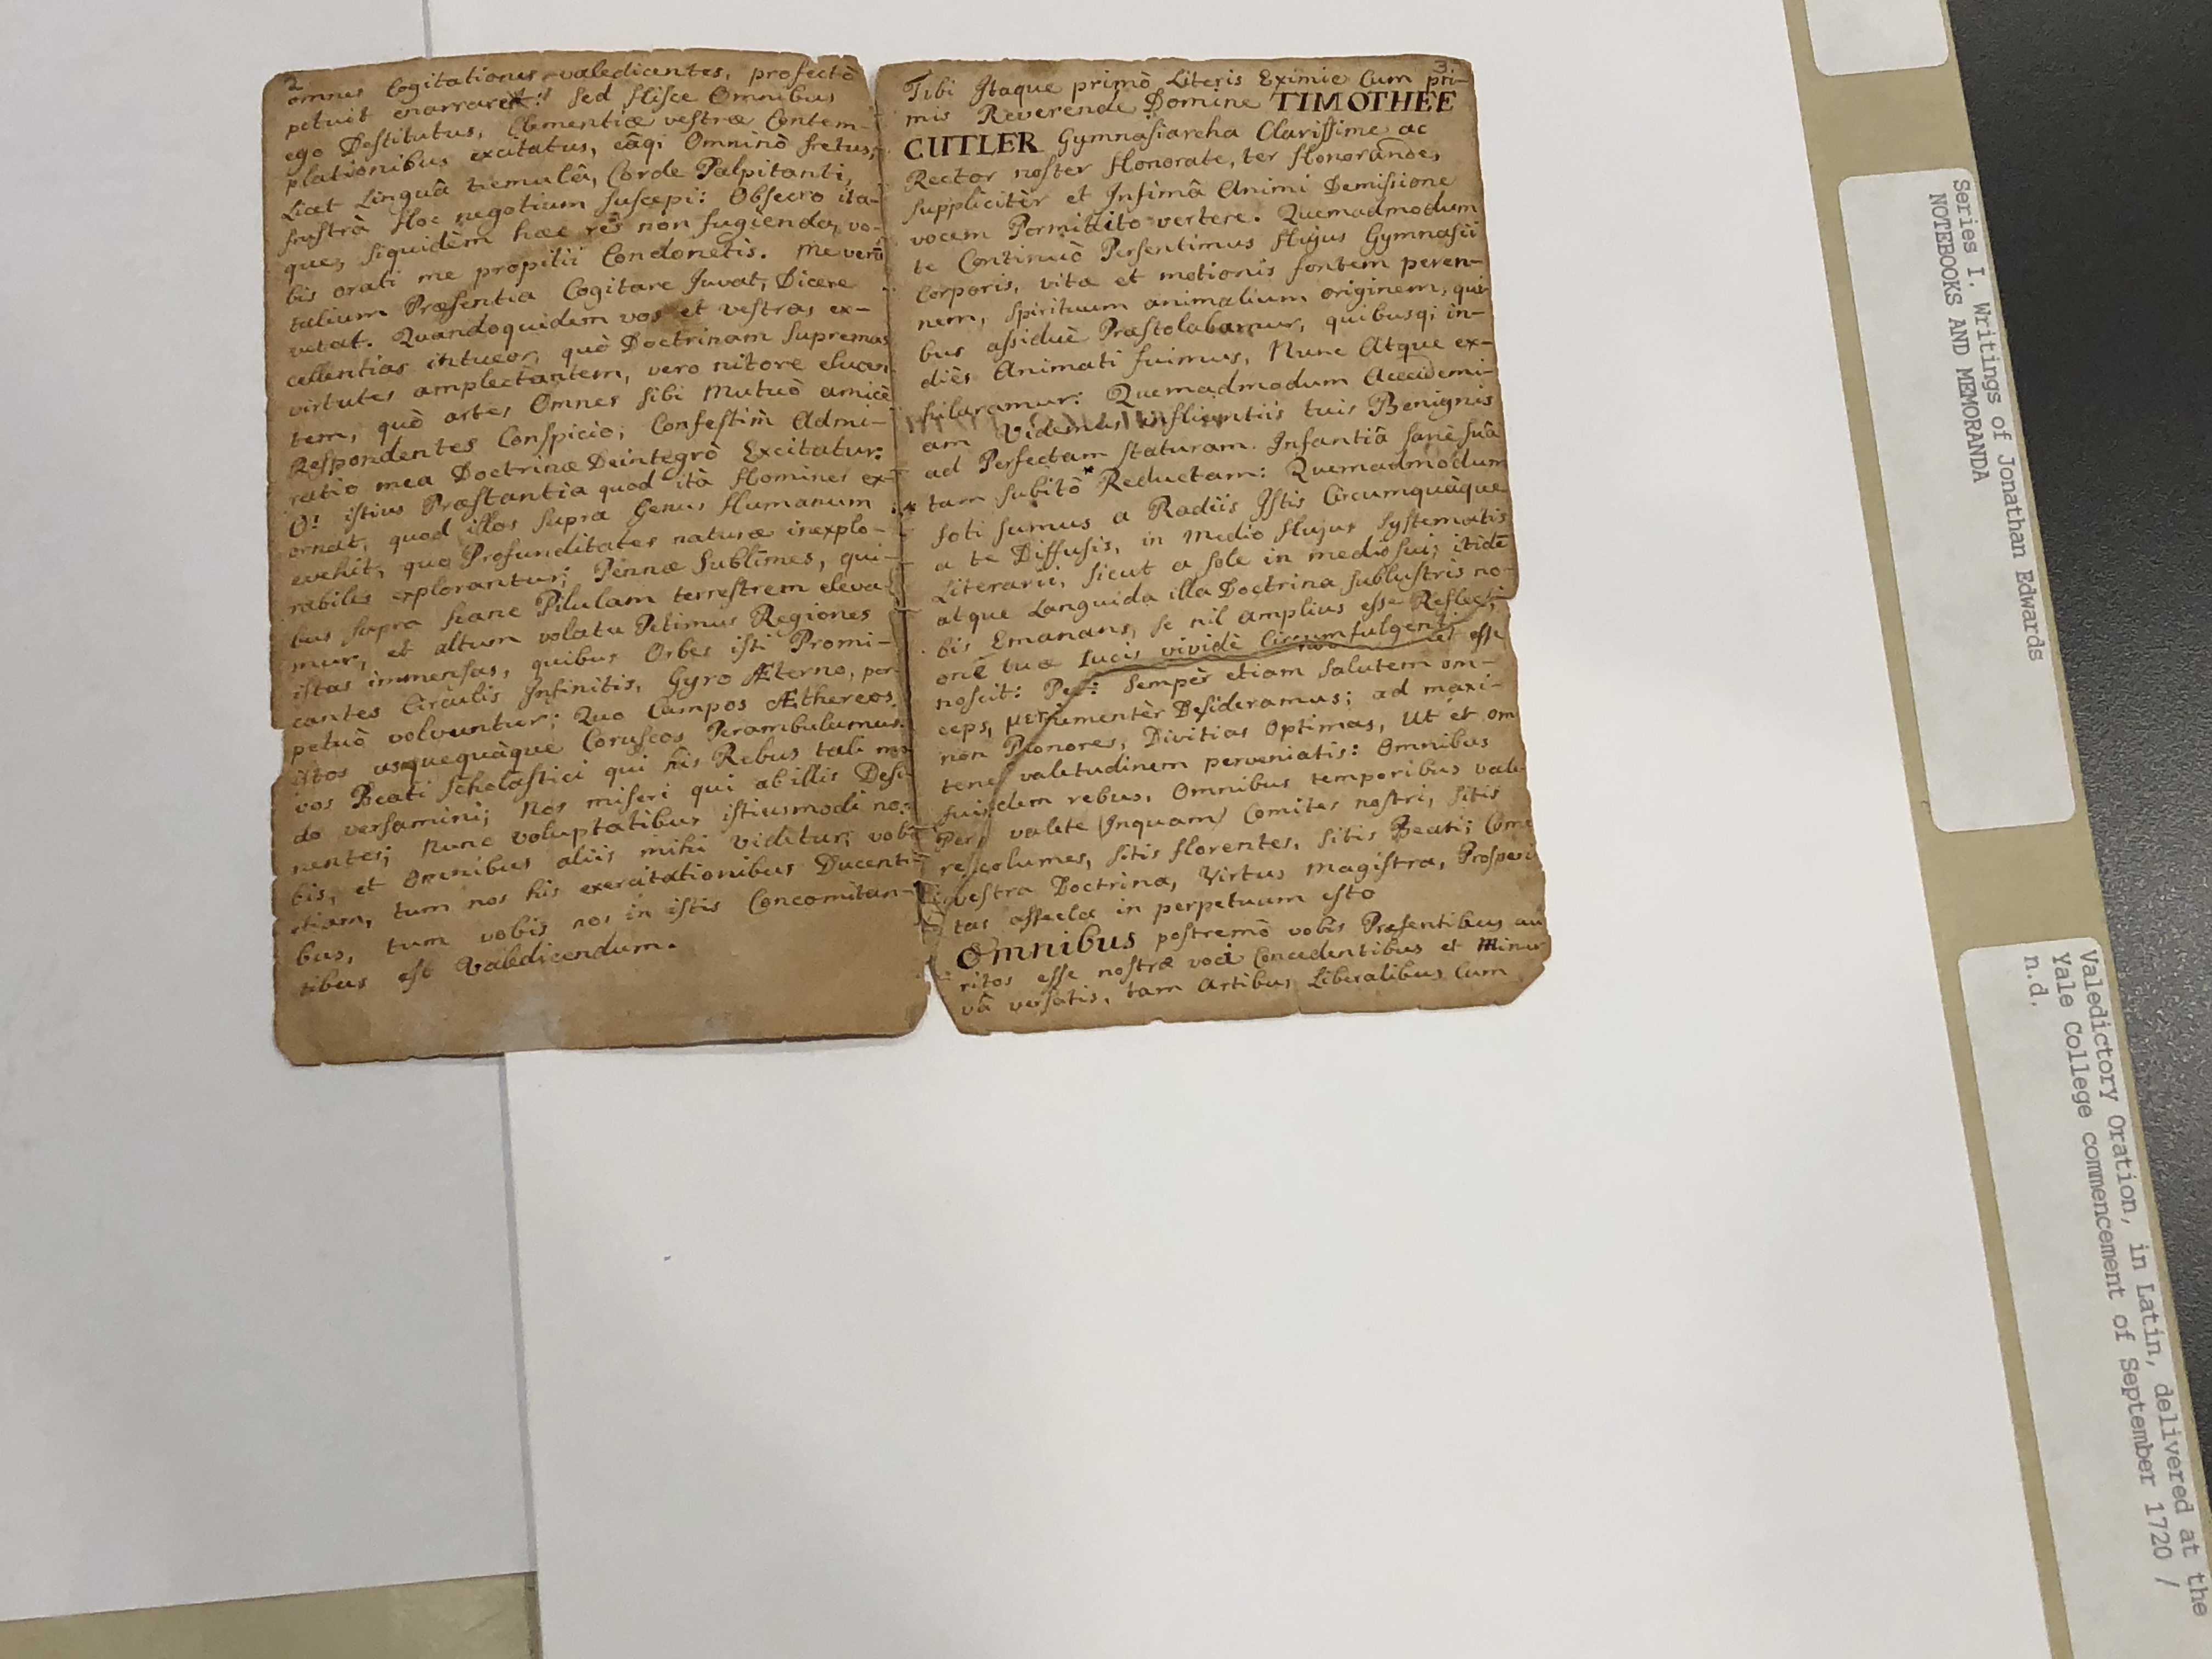 2
omnes Cogitationes valedicentes, profectò
petuit enarraret! sed Hisce Omnibus
ego Destitutus, Clementiæ vestræ Contem-
plationibus excitatus, eâqi Omninò fretus,
Licet Linguâ tremulâ, Corde Palpitanti,
frustrà Hoc negotium suscepi: Obsecro ita-
que, siquidèm hæc rēs non fugienda, vo-
bis orati me propitii Condonetis. Me verū
talium Præsentia Cogitare Juvat, Dicere
vetat. Quandoquidem vos et vestras ex-
cellentias intueor, quò Doctrinam supremas
virtutes amplectantem, vero nitore elucen
tem, quò artes Omnes sibi Mutuò amicè
Respondentes Conspicio; Confestim Admi-
ratio mea Doctrinæ Deintegrò Excitatur:
O! istius Præstantia quod ità Homines ex-
ornat, quod illos supra Genus Humanum
evehit, quo Profunditates naturæ inexplo-
rabiles explorantur; Pennæ Sublimes, qui-
bus supra hanc Pilulam terrestrem eleva-
mur, et altum volatu Petimus Regiones
istas immensas, quibus Orbes isti Promi-
cantes Circulis Infinitis, Gyro Æterno, per
petuò volvuntur; Quo Campos Æthereos
istos usquequàque Coruscos Perambulamus.
vos Beati Scholastici qui his Rebus tali mo
do versamini; Nos miseri qui ab illis Desi-
nentes; Nunc voluptatibus istiusmodi no-
bis, et Omnibus aliis mihi Videtur; vobis
etiam, tum nos his exercitationibus Ducenti-
bus, tum vobis nos in istis Concomitan-
tibus est Valedicendum.
3
Tibi Itaque primò Literis Eximie Cum pri-
mis Reverende Domine TIMOTHEE
CUTLER Gymnasiarcha Clarissime ac
Rector noster Honorate, ter Honorande,
supplicitèr et Infimâ Animi Demissione
vocem Permittito vertere. Quemadmodum
te Continuò Persentimus Hujus Gymnasii
Corporis, vitæ et motionis fontem peren-
nem, spirituum animalium originem, qui-
bus assiduè Præstolabamur, quibusqi in-
diès Animati fuimus, Nunc Atque ex-
hilaramur: Quemadmodum Accademi-
am Videmus influentiis tuis Benignis
ad Perfectam staturam Infantiâ sanè suâ
tam subitò * Reductam: Quemadmodum
* foti sumus a Radiis Istis Circumquàque
a te Diffusis, in medio Hujus systematis
Literarii, sicut a sole in medio sui; itidē
atque Languida illa Doctrina sublustris no-
bis Emanans, se nil amplius esse Reflecti-
onē tuæ Lucis vividè Circumfulgenti et esse
noscit: semper etiam Salutem om-
Desideramus; ad maxi-
non Honores, Divitias Optimas, Ut et om
valetudinem perveniatis: Omnibus
rebus, Omnibus temporibus vale
valete (Inquam) Comites nostri, sitis
sitis florentes, sitis Beati; Come
vestra Doctrina, Virtus magistra, Prosperi
tas assecla in perpetuum esto
Omnibus postremò vobis Præsentibus au
ritos esse nostræ voci Concedentibus et Miner
vâ versatis, tam Artibus Liberalibus Cum
Series I. Writings of Jonathan Edwards
NOTEBOOKS AND MEMORANDA
Valedictory Oration, in Latin, delivered at the
Yale College commencement of September 1720 /
n.d.